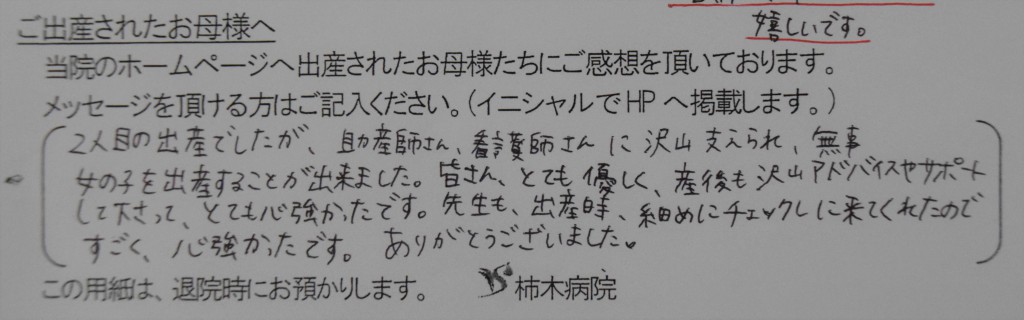 嬉しいです。
ご出産されたお母様へ
当院のホームページへ出産されたお母様たちにご感想を頂いております。
メッセージを頂ける方はご記入ください。(イニシャルでHPへ掲載します。)
2人目の出産でしたが、助産師さん、看護師さんに沢山支えられ、無事
女の子を出産することが出来ました。皆さん、とても優しく、産後も沢山アドバイスやサポート
して下さって、とても心強かったです。先生も、出産時、細めにチェックしに来てくれたので
すごく、心強かったです。ありがとうございました。
この用紙は、退院時にお預かりします。 柿木病院